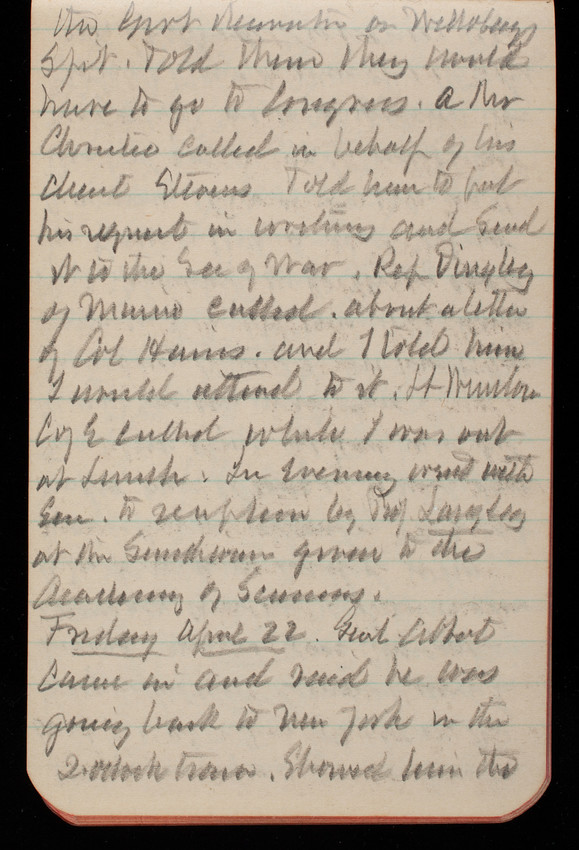 the Govt Reservation on Willoboughy
Spit. Told them they would
have to go to Congress. A Mr
Christie called in behalf of his
client Stevens Told him to put
his request in writing and send
it to the Sec of War. Rep Dingley
of Maine called about a letter
of Col Hains. and I told him
I would attend to it. Lt Winslow
Co E called while I was out
at Lunch. In Evening went with
Gen. to reception by Prof Langley
at the Smithsonian given to the
Academy of Sciences.
Friday April 22. Genl Abbot
came in and said he was
going back to New York in the
2 oclock train. Showed him the